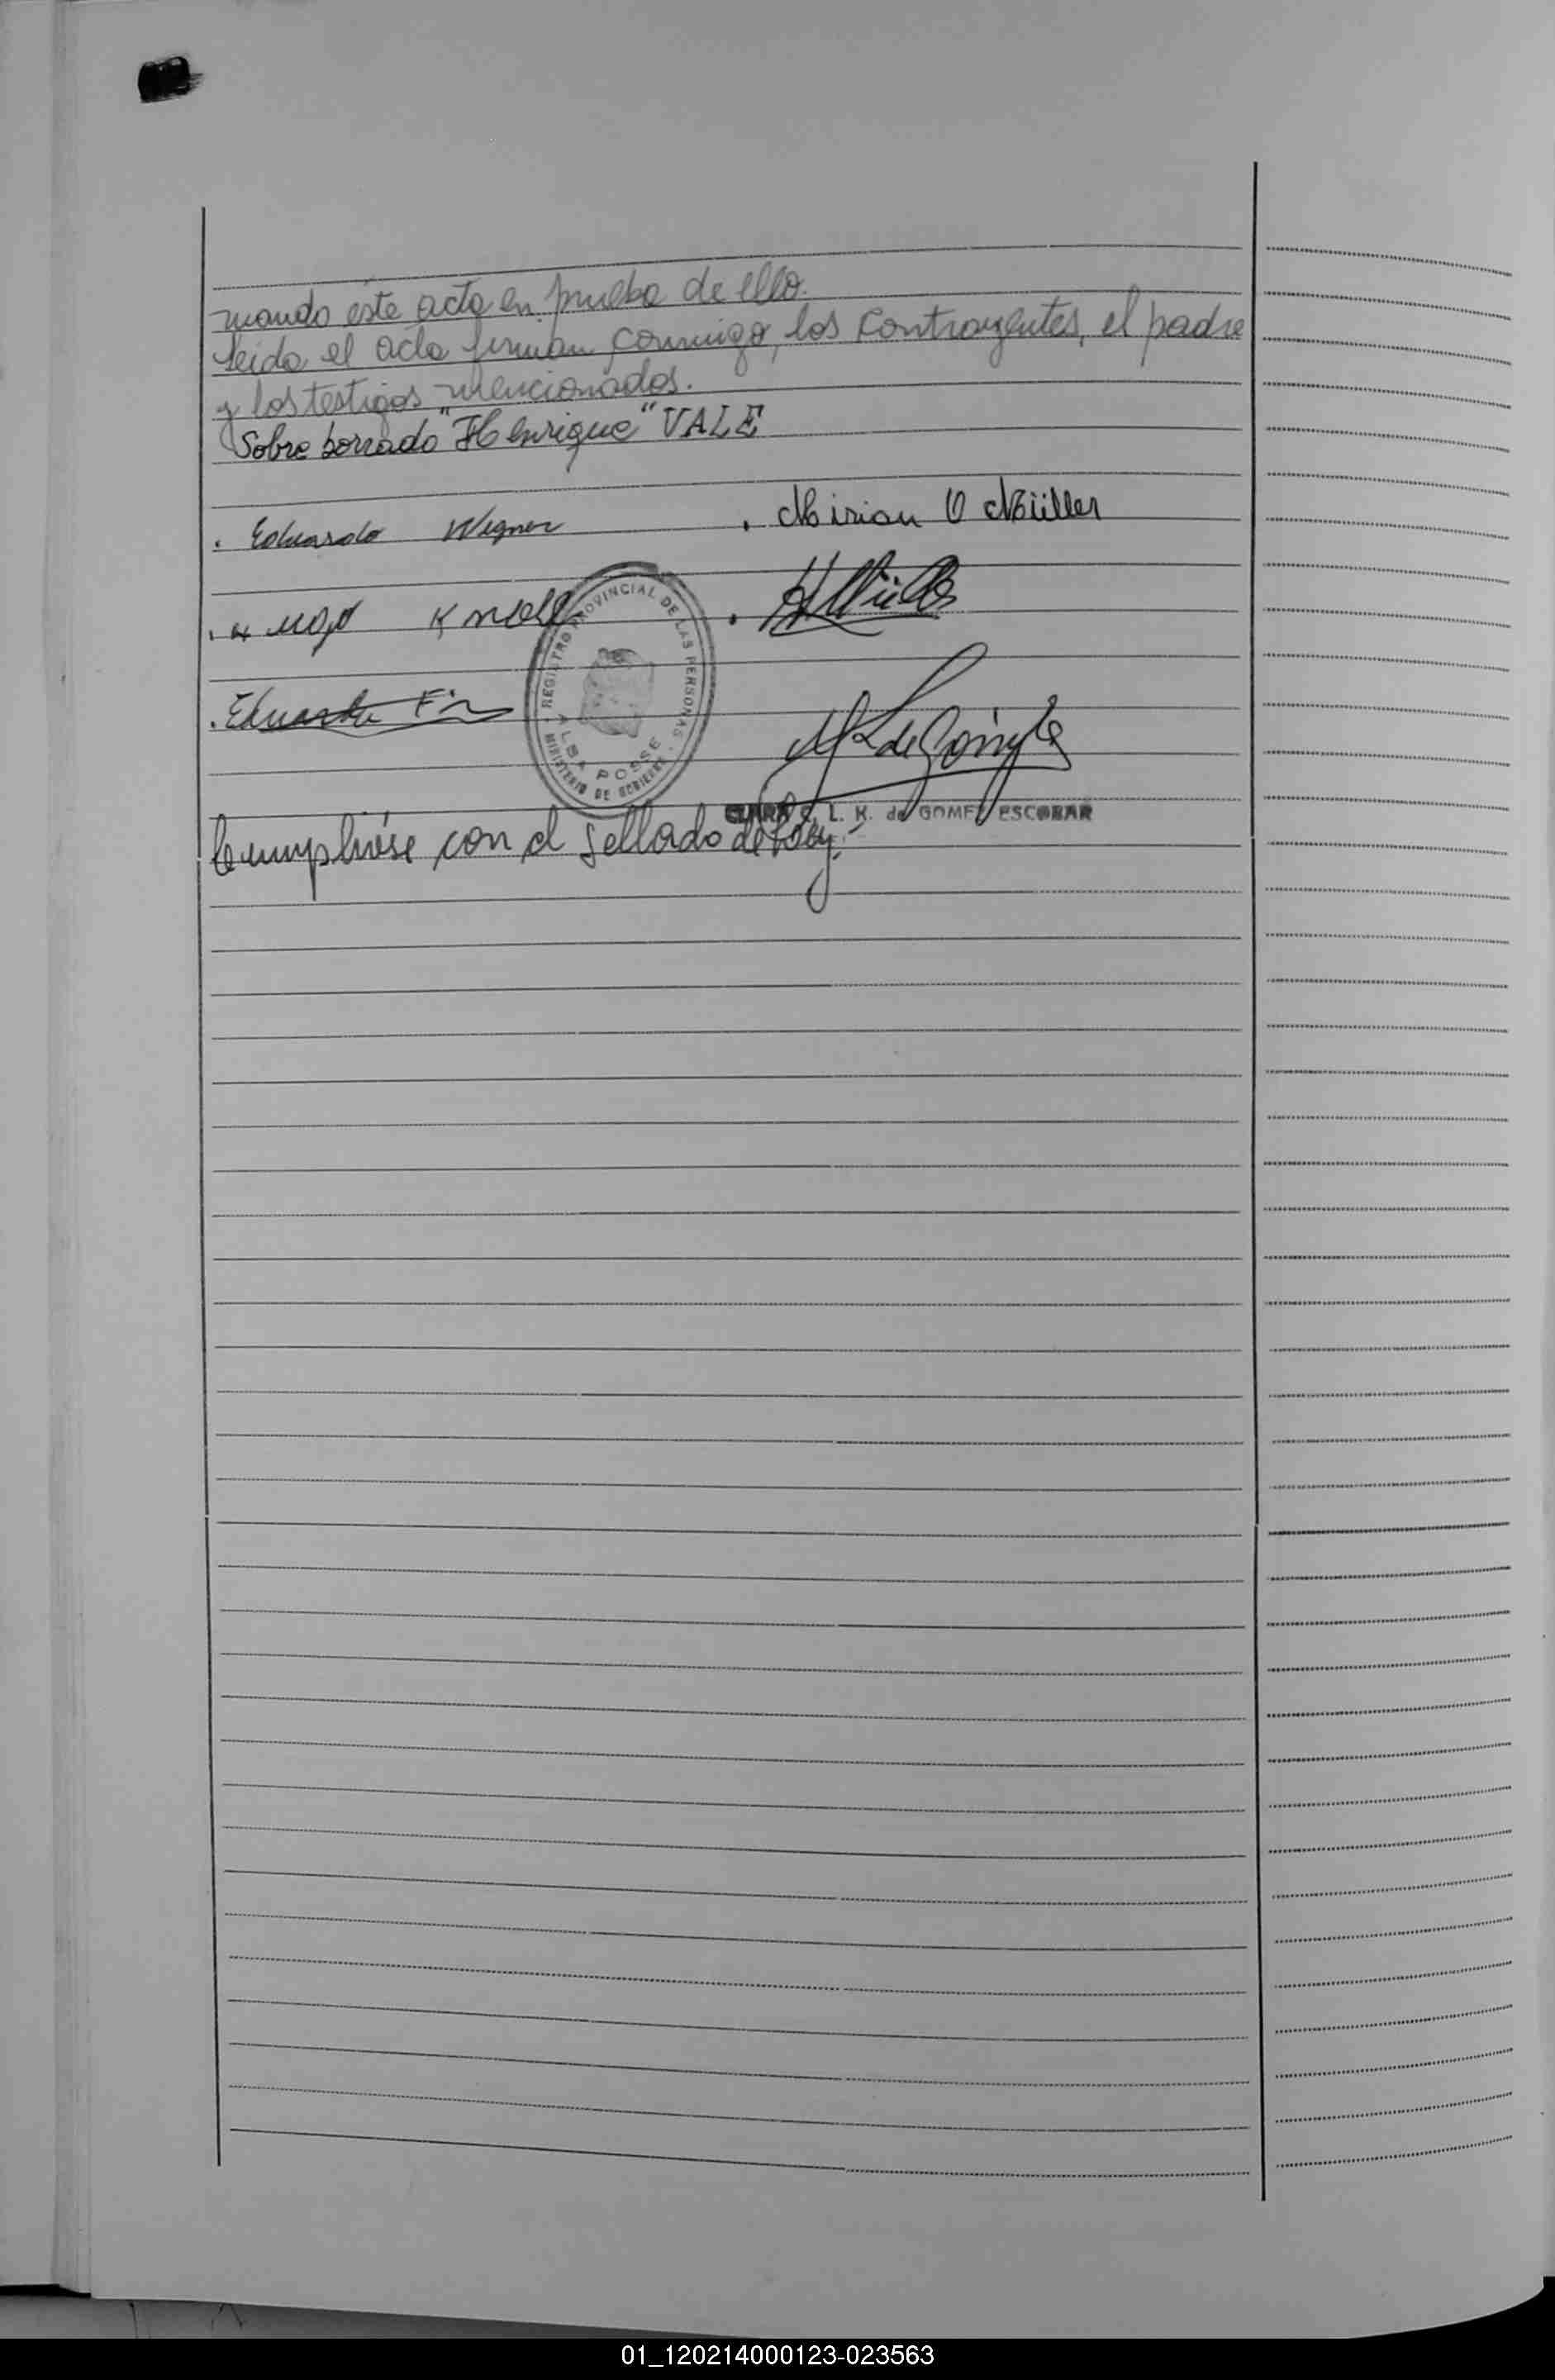 mando éste acta en prueba de ello.
Leida el acta firman conmigo, los Contrayentes, el padre
y los testigos mencionados.
Sobre borrado "Henrique" VALE
. Eduardo Wegner
. Mirian O Müller
Hugo Knoll
. AMüller
. Eduardo
REGISTRO PROVINCIAL DE LAS PERSONAS
MINISTERIO DE GOBIERNO
ALBA POSSE
CLARA S. L. K. de GOMEZ ESCOBAR
Cumplióse con el sellado de Ley.-
01_120214000123-023563